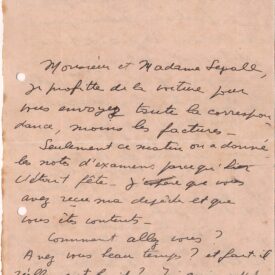 Monsieur et Madame Sepall,
je profite de la voiture pour
vous envoyez toute la correspon
dance, moins les factures -
Seulement ce matin on a donné
les note d'examens parce qu'hier
c'était fête - J'espère que vous
avez reçu ma dépêche et que
vous êtes contents -
Comment allez vous ?
Avez vous beau temps ? et fait il